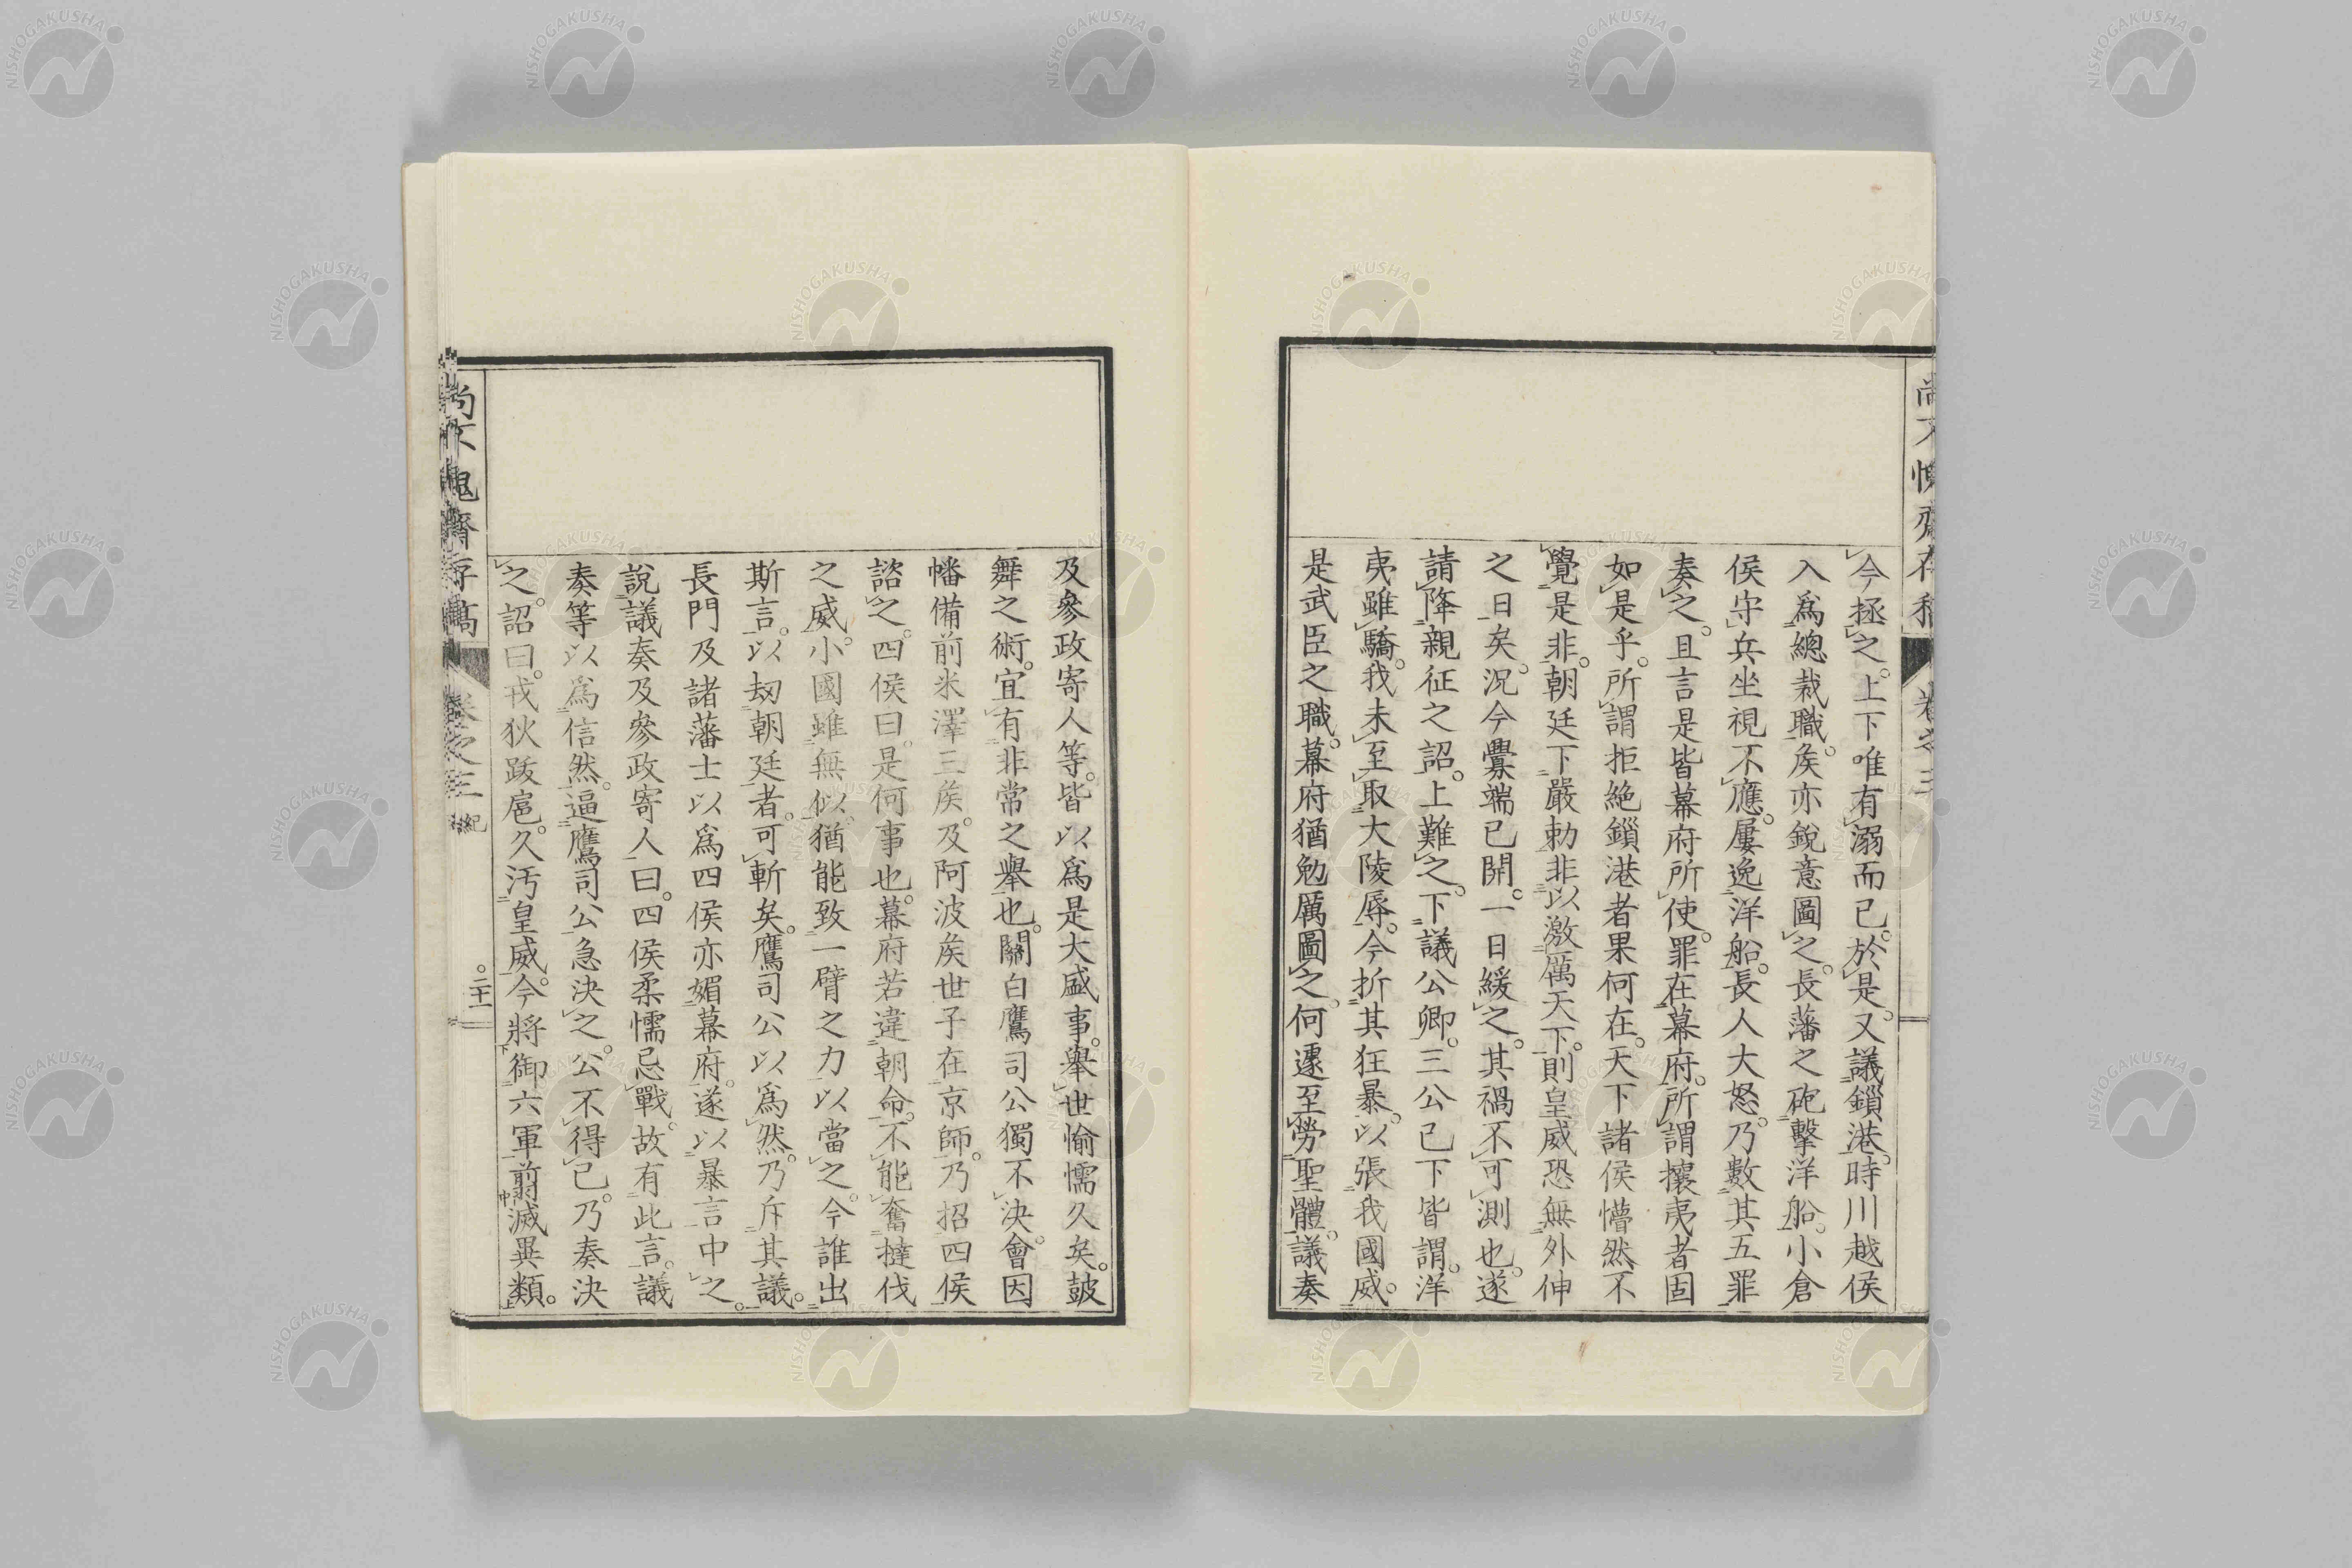 今拯之。上下唯有溺而已。於是又議鎖港。時川越侯
入爲總裁職。矦亦銳意圖之。長藩之砲擊洋船。小倉
侯守兵坐視不應。屢逸洋船。長人大怒。乃數其五罪
奏之。且言是皆幕府所使。罪在幕府。所謂攘夷者固
如是乎。所謂拒絶鎖港者果何在。天下諸侯懵然不
覺是非。朝廷下嚴勅非以激厲天下。則皇威恐無外伸
之日矣。況今釁端已開。一日緩之。其禍不可測也。遂
請降親征之詔。上難之。下議公卿。三公已下皆謂。洋
夷雖驕。我未至取大陵辱。今折其狂暴。以張我國威。
是武臣之職。幕府猶勉厲圖之。何遽至勞聖體。議奏
及參政寄人等。皆以爲是大盛事。擧世愉懦久矣。鼓
舞之術。宜有非常之擧也。關白鷹司公獨不決。會因
幡備前米澤三矦。及阿波矦世子在京師。乃招四侯
諮之。四侯曰。是何事也。幕府若違朝命。不能奮撻伐
之威。小國雖無似。猶能致一臂之力以當之。今誰出
斯言。以刼朝廷者。可斬矣。鷹司公以爲然。乃斥其議。
長門及諸藩士以爲四侯亦媚幕府。遂以暴言中之。
說議奏及參政寄人曰。四侯柔懦忌戰。故有此言。議
奏等以爲信然。逼鷹司公急決之。公不得已。乃奏決
之。詔曰。戎狄跋扈。久汚皇威。今將御六軍翦滅異類。
尚不愧齋存稿 卷之三 紀 二十一